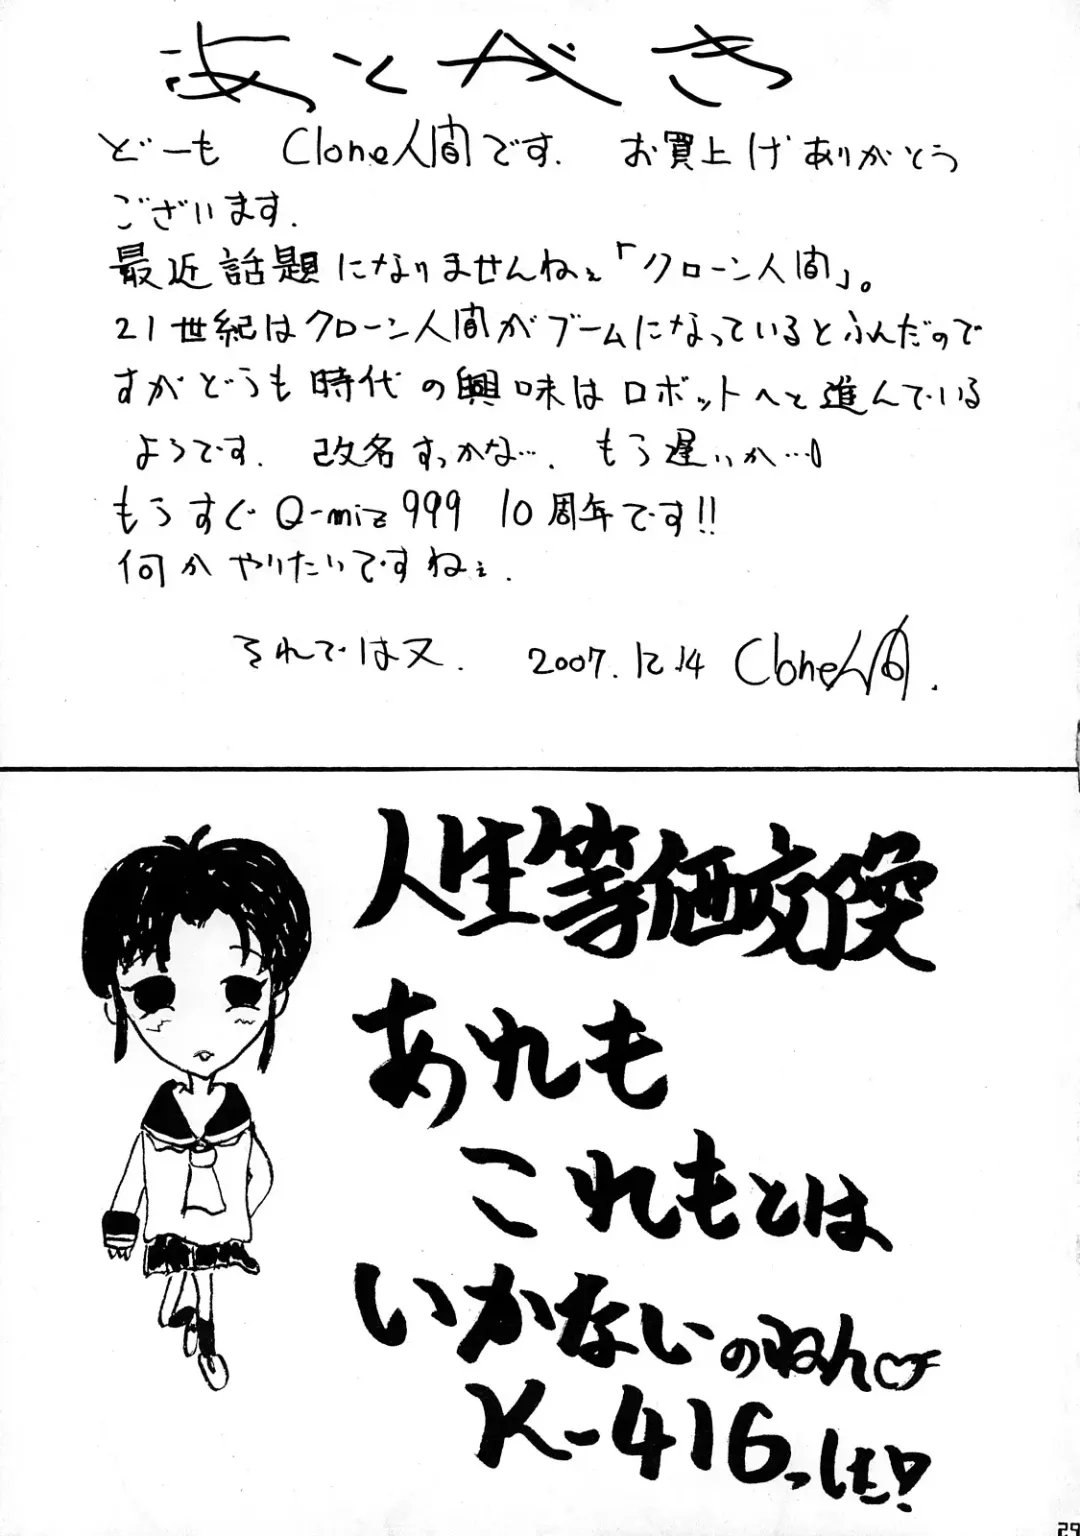 あとがき
どーも Clone人間です. お買上げありがとう
ございます.
最近話題になりませんねぇ「クローン人間」。
21世紀はクローン人間がブームになっているとふんだので
すがどうも時代の興味はロボットへと進んでいる
ようです. 改名すっかな…. もう遅いか…!
もうすぐ Q-miz 999 10周年です!!
何かやりたいですねぇ.
それでは又. 2007.12.14 Clone人間.
人生等価交換
あれも
これもとは
いかないのねん♡
K-416っした!
29